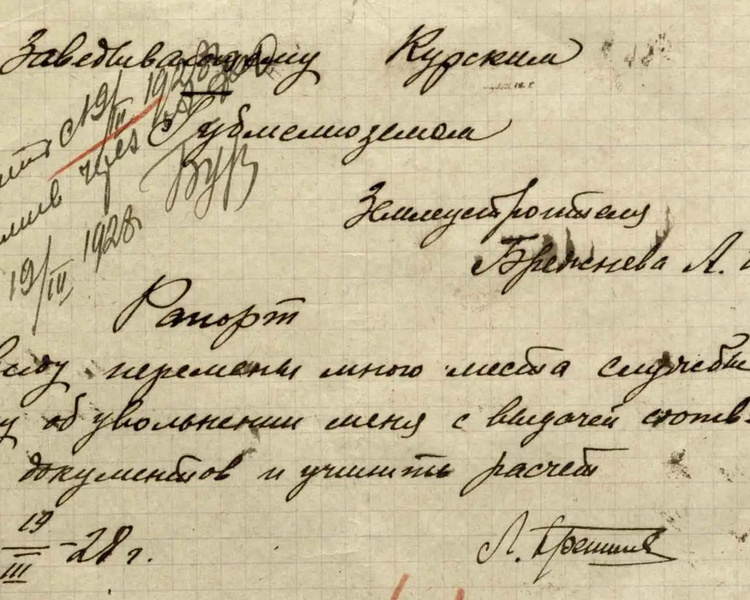 Заведывающему Курским
Губмелиоземом
Землеустроителя
Брежнева Л. И
Рапорт
виду перемены мною места службы
у об увольнении меня с выдачей соотв.
документов и учинить расчет
19/III - 28 г.
Л. Брежнев
с 19/III 1928
через
19/III 1928